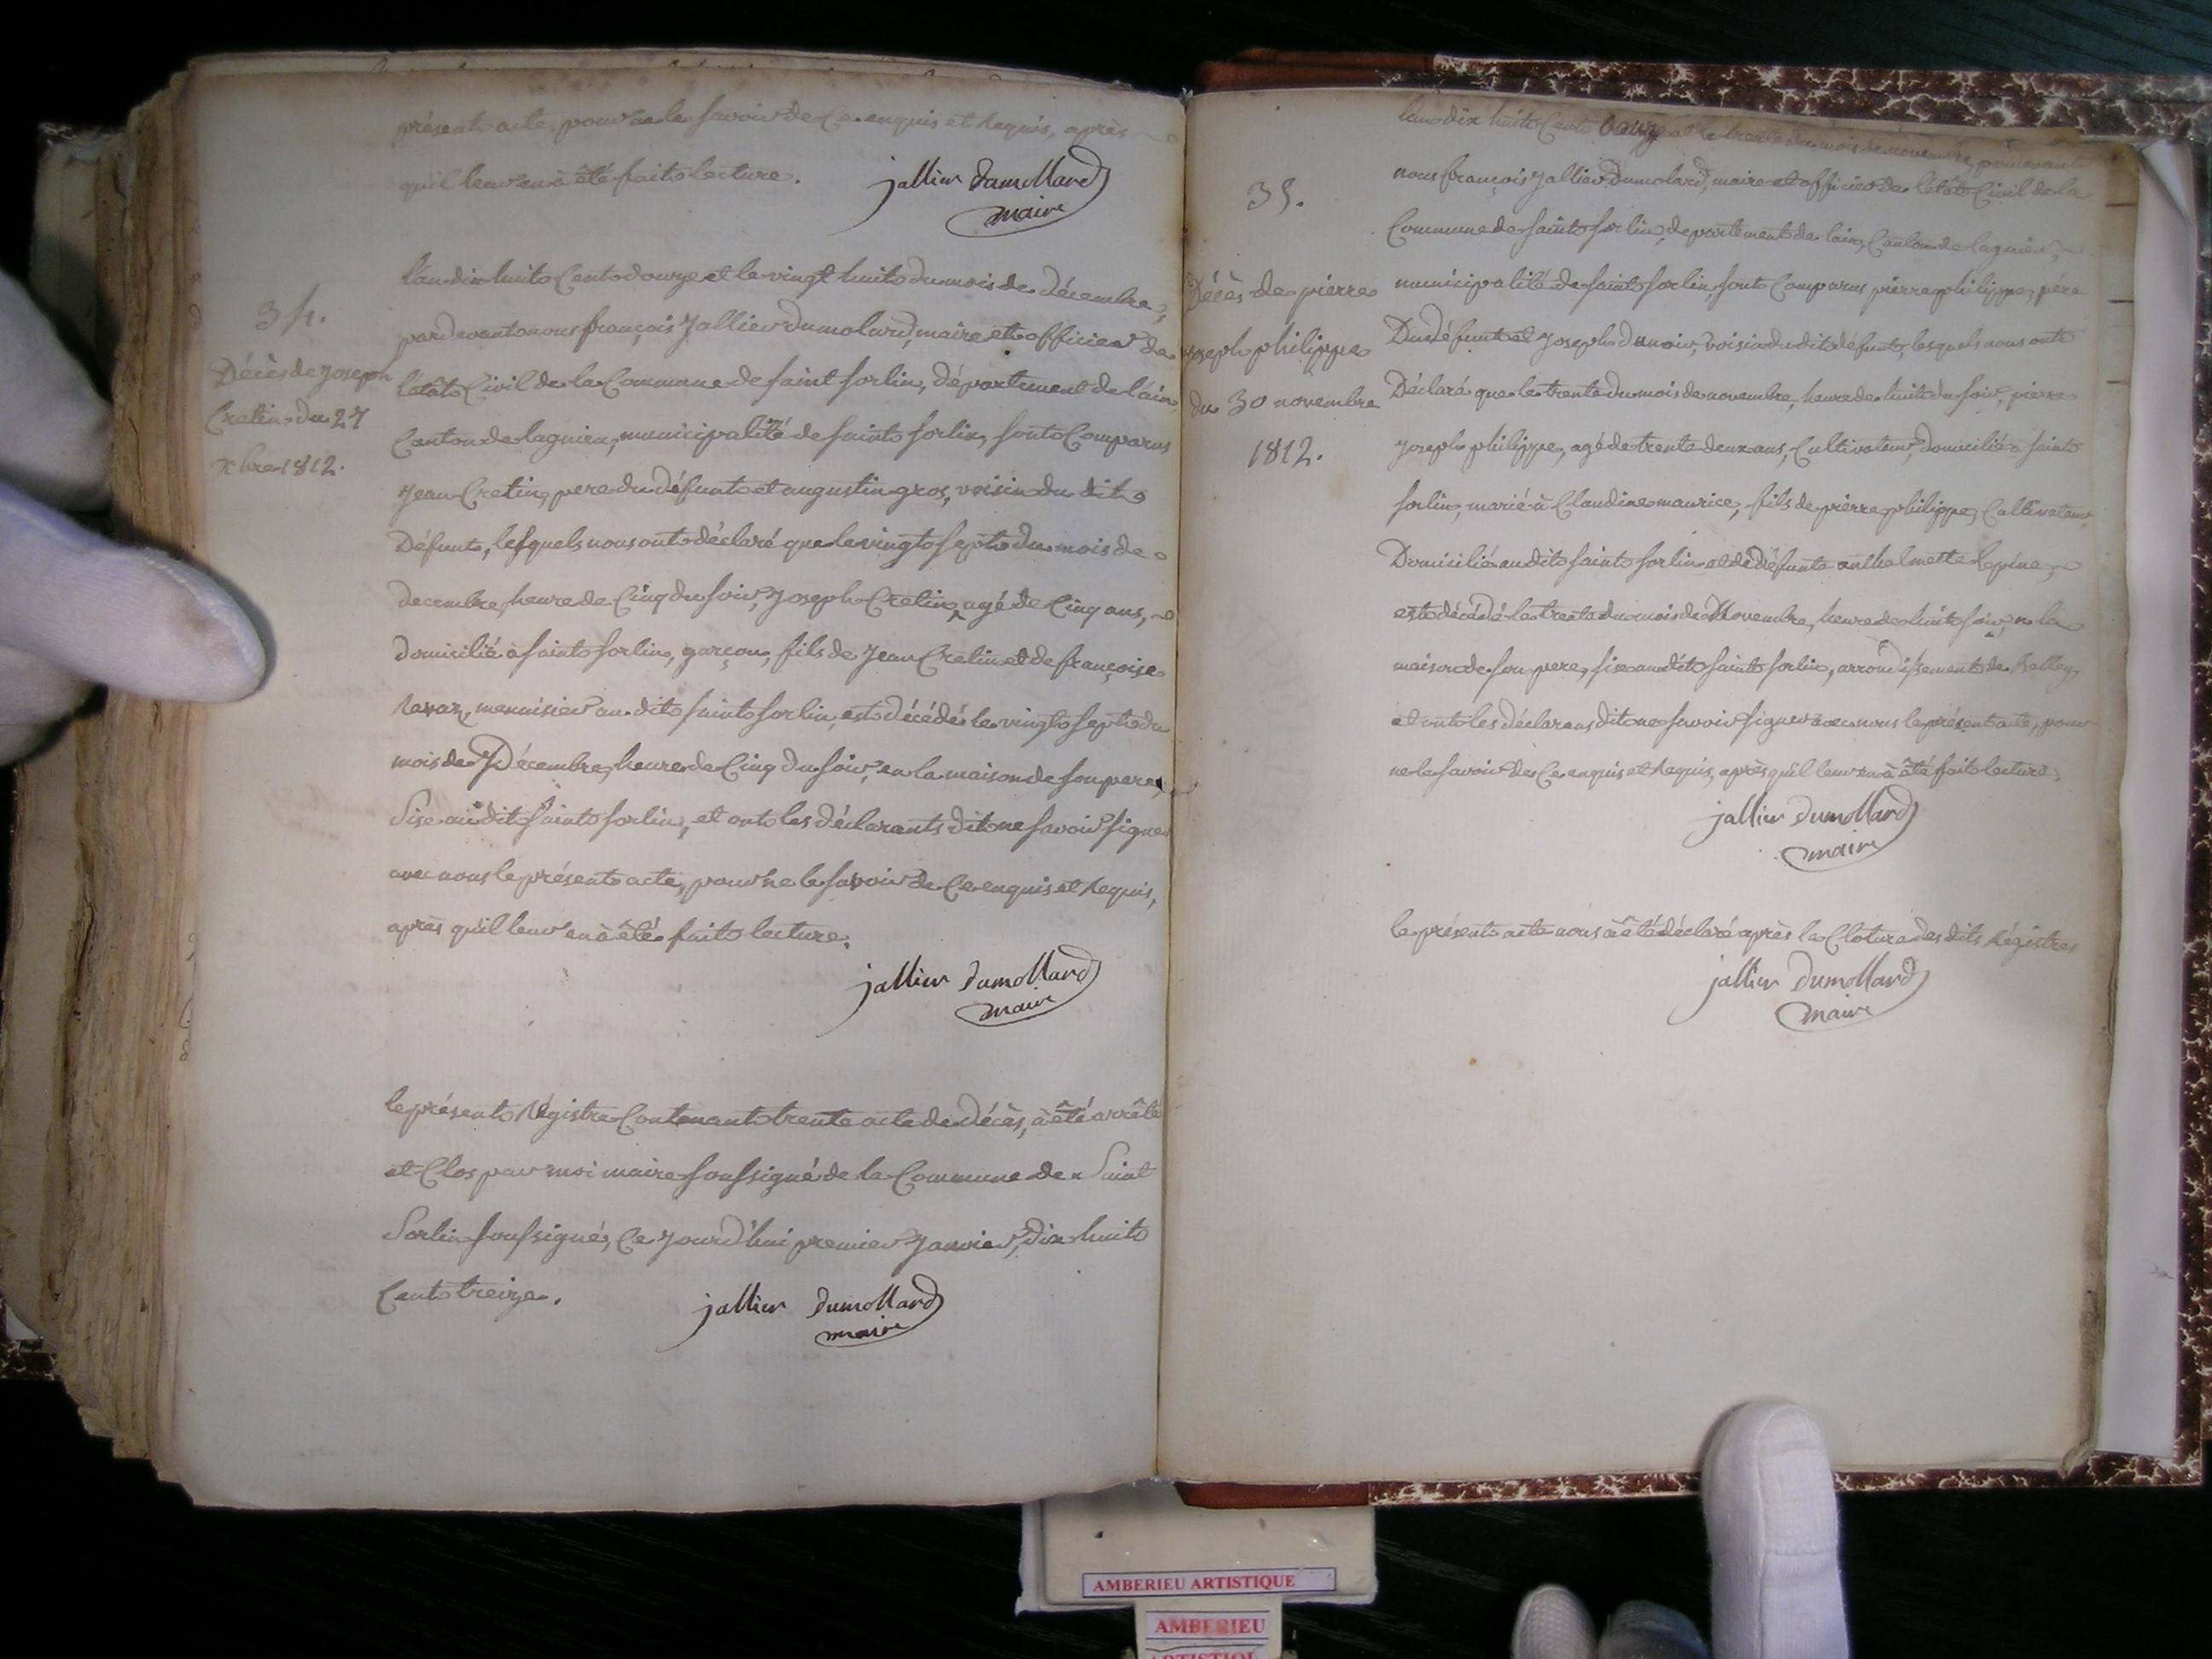 présent acte, pour ne le savoir de ce enquis et requis, après
qu'il leur en à êté fait lecture.
jallier dumollard
maire
34.
Décès de Joseph
Cretin du 27
xbre 1812.
l'an dix huit cent douze et le vingt huit du mois de décembre,
pardevant nous françois Jallier dumolard, maire et officier de
l'êtât Civil de la Commune de saint sorlin, département de l'ain
Canton de lagnieu, municipalité de saint sorlin, sont Comparus
Jean Cretin, pere du défunt et augustin gros, voisin du dit
Défunt, lesquels nous ont déclaré que le vingt sept du mois de
decembre, heure de Cinq du soir, Joseph Cretin, agé de Cinq ans,
domicilié à saint sorlin, garçon, fils de Jean Cretin et de françoise
menuisier au dit saint sorlin, est décédé le vingt sept du
mois de Décembre, heure de Cinq du soir, en la maison de son pere,
Sise audit saint sorlin, et ont les déclarants dit ne savoir signer
avec nous le présent acte, pour ne le savoir de Ce enquis et requis,
après qu'il leur en à êté fait lecture.
jallier dumollard
maire
le présent régistre Contenant trente acte de décès, à êté arrêté
et Clos par moi maire soussigné de la Commune de Saint
Sorlin soussigné, Ce Jourd'hui premier Janvier, dix huit
Cent treize.
jallier dumollard
maire
35.
Décès de pierre
Joseph philippe
du 30 novembre
1812.
l'an dix huit Cent et le trente du mois de novembre pardevant
nous françois Jallier Dumolard, maire et officier de l'êtât Civil de la
Commune de saint sorlin, departement de l'ain, Canton de lagnieu,
municipalité de saint sorlin, sont Comparus pierre philippe, pére
Du défunt et Joseph dunoir, voisin du dit défunt, lesquels nous ont
Déclaré que le trente du mois de novembre, heure de huit du soir, pierre
Joseph philippe, agé de trente deux ans, Cultivateur, domicilié à saint
sorlin, marié à Claudine maurice, fils de pierre philippe, Cultivateur,
Domicilié audit saint sorlin et de défunte anthelmette Lepine,
est décédé le trente du mois de Novembre, heure de huit soir, en la
maison de son pere, sise audit saint sorlin, arrondissement de belley,
et ont les déclarans dit ne savoir signer avec nous le présent acte, pour
ne le savoir de Ce enquis et requis, après qu'il leur en à êté fait lecture.
jallier dumollard
maire
le présent acte nous à êté déclaré après la Cloture des dits régistres
jallier dumollard
maire
AMBERIEU ARTISTIQUE
AMBERIEU
ARTISTIQUE